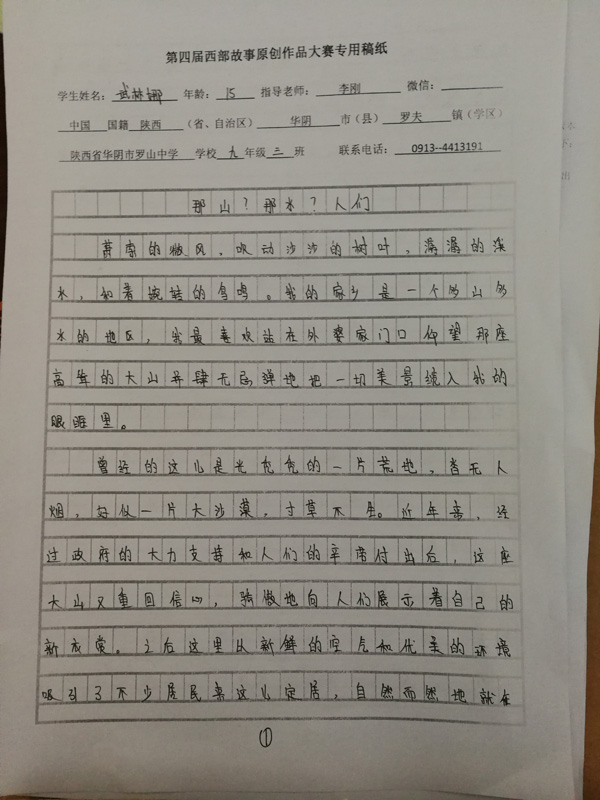 第四届西部故事原创作品大赛专用稿纸
学生姓名：武林娜 年龄：15 指导老师：李刚 微信：
中国 国籍 陕西（省、自治区） 华阴 市（县） 罗夫 镇（学区）
陕西省华阴市罗山中学 学校九年级三班 联系电话：0913--4413191
那山？那水？人们
萧索的微风，吹动沙沙的树叶，潺潺的溪
水，和着婉转的鸟鸣。我的家乡是一个多山多
水的地区，我最喜欢站在外婆家门口仰望那座
高耸的大山并肆无忌惮地把一切美景缆入我的
眼睚里。
曾经的这儿是光秃秃的一片荒地，杳无人
烟，好似一片大沙漠，寸草不生。近年来，经
过政府的大力支持和人们的辛唐付出后，这座
大山又重回信心，骄傲地向人们展示着自己的
新衣裳。之后这里以新鲜的空气和优美的环境
吸引了不少居民来这儿定居，自然而然地就在
①